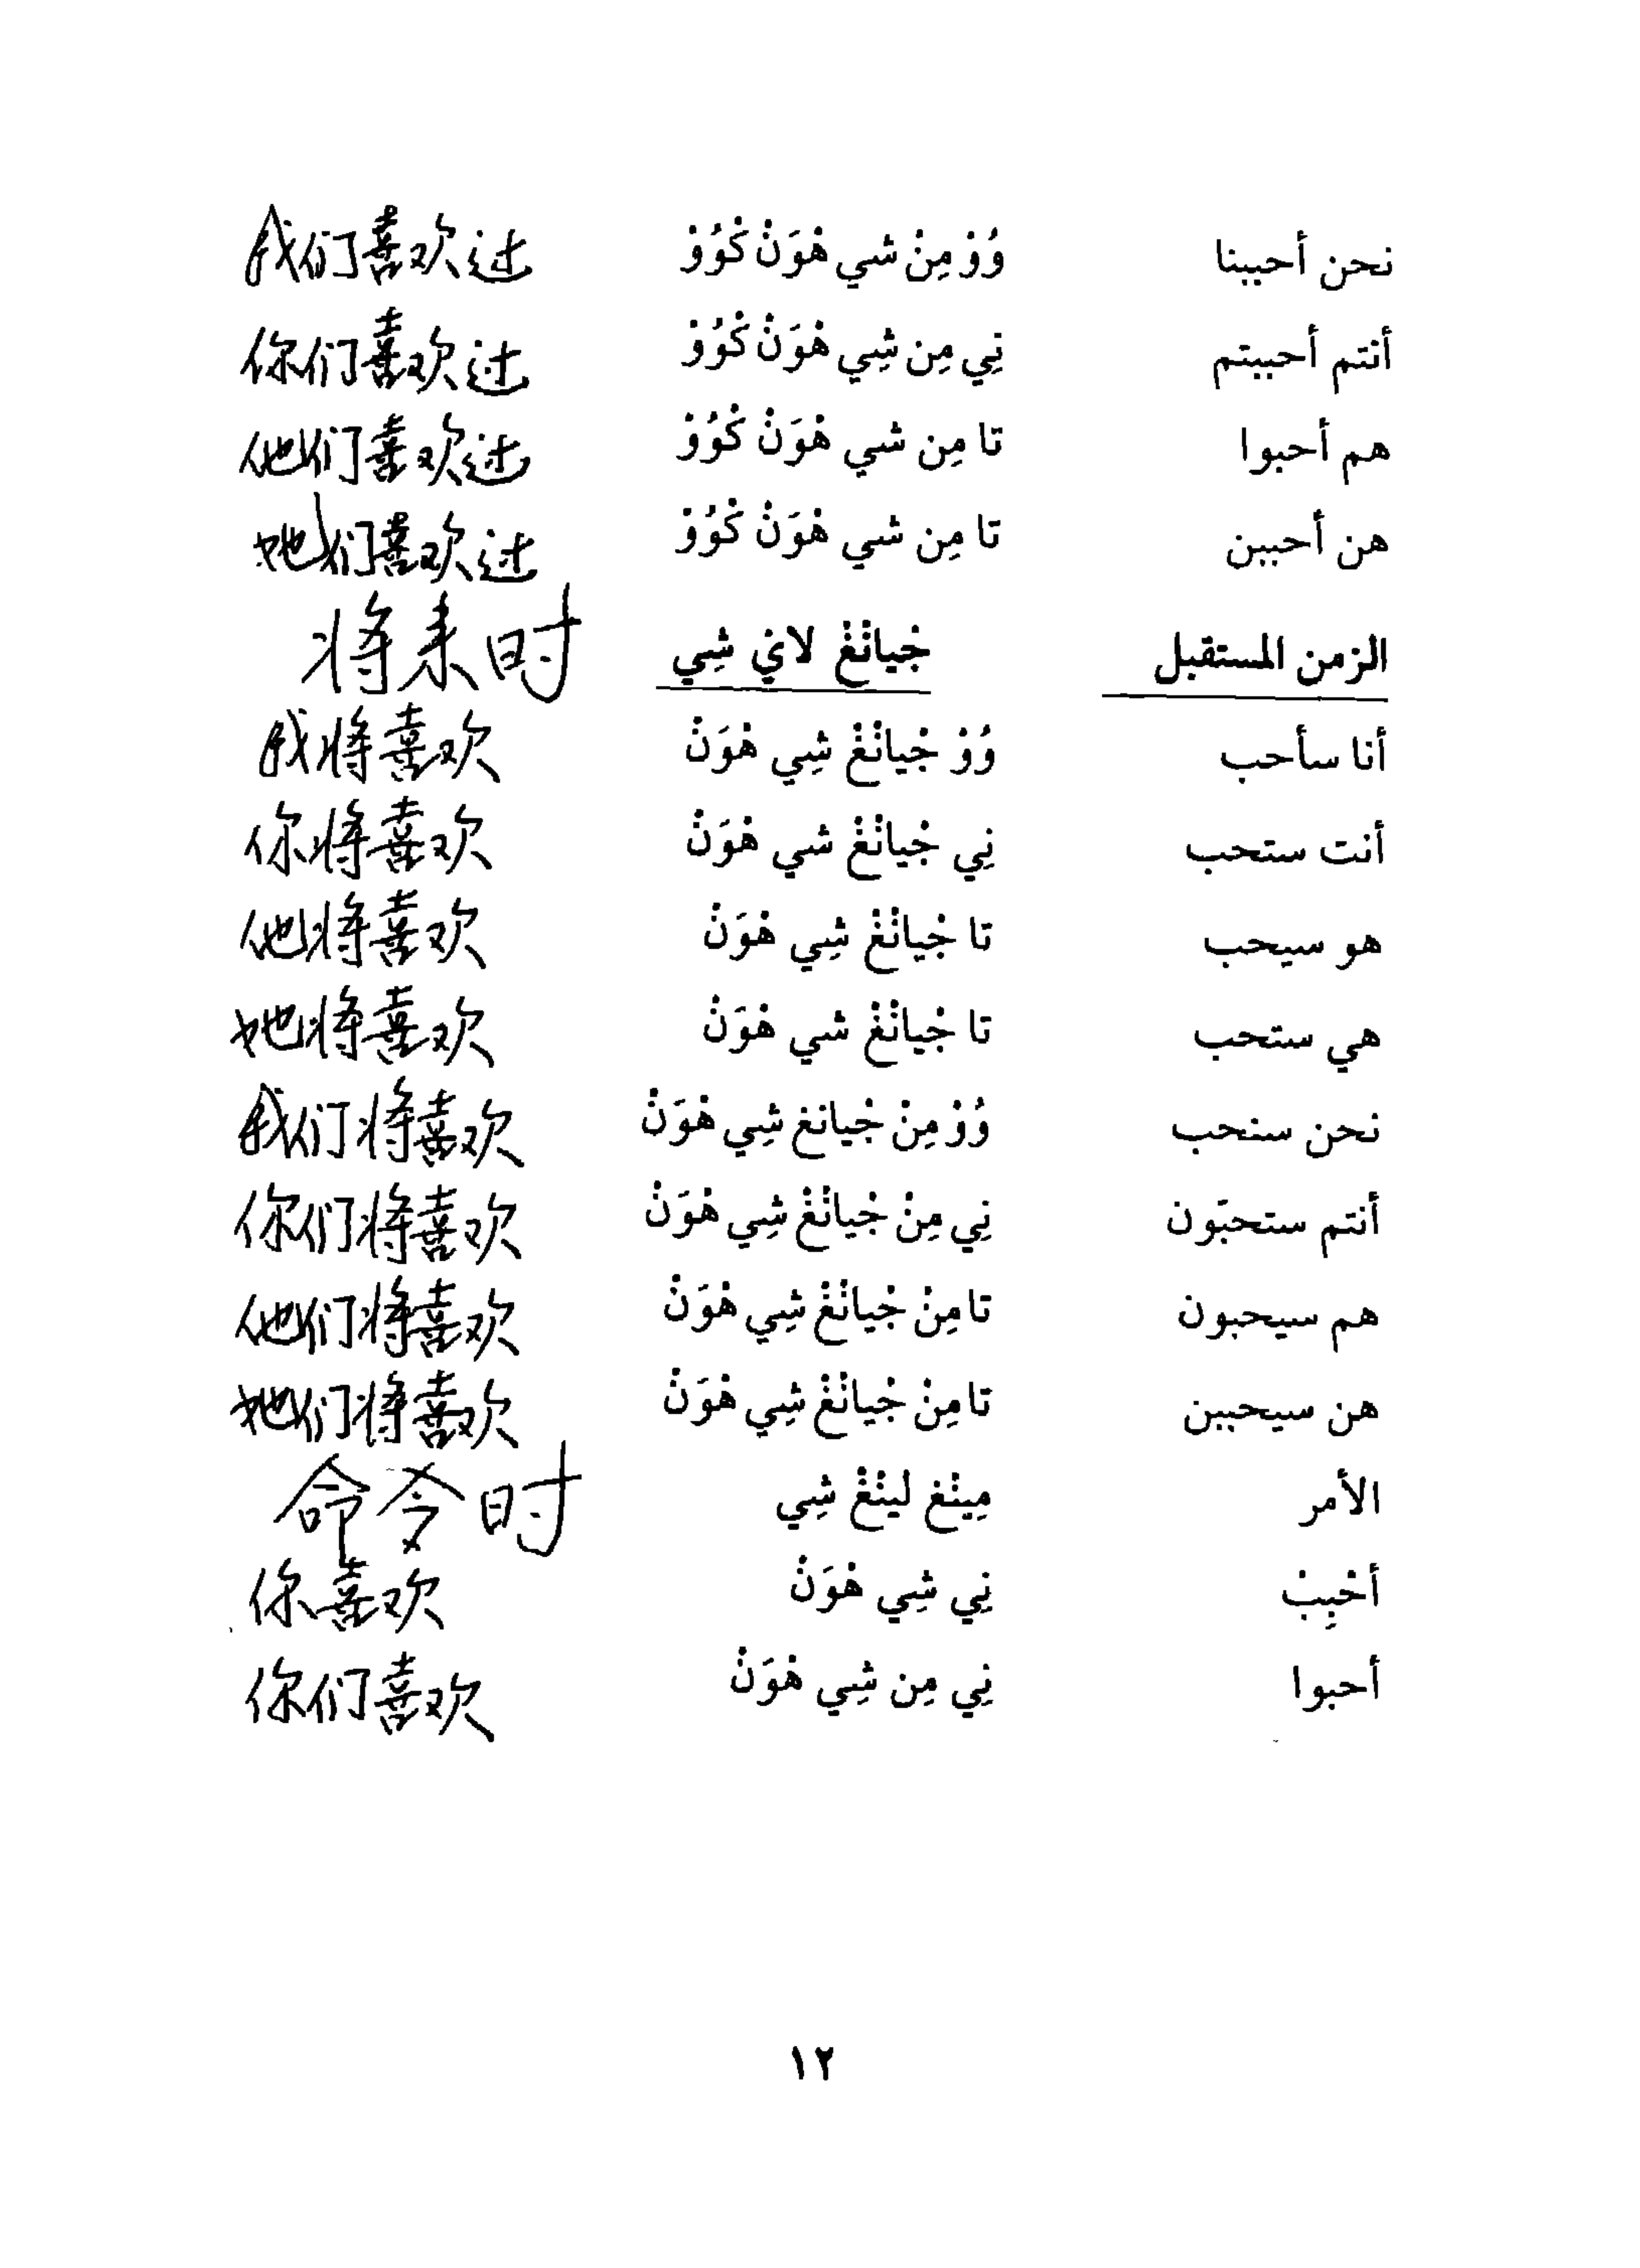 نحن أحببنا وُوْ مِنْ شي هْوَنْ كْوُوْ 我们喜欢过
أنتم أحببتم نِي مِن شِي هْوَنْ كْوُوْ 你们喜欢过
هم أحبوا تا مِن شي هْوَنْ كْوُوْ 他们喜欢过
هن أحببن تا مِن شي هْوَنْ كْوُوْ 她们喜欢过
الزمن المستقبل جْيانْغْ لايْ شِي 将来时
أنا سأحب وُوْ جْيانْغْ شِي هْوَنْ 我将喜欢
أنت ستحب نِي جْيانْغْ شي هْوَنْ 你将喜欢
هو سيحب تا جْيانْغْ شِي هْوَنْ 他将喜欢
هي ستحب تا جْيانْغْ شي هْوَنْ 她将喜欢
نحن سنحب وُوْ مِنْ جْيانغ شِي هْوَنْ 我们将喜欢
أنتم ستحبّون نِي مِنْ جْيانْغْ شِي هْوَنْ 你们将喜欢
هم سيحبون تا مِنْ جْيانْغْ شِي هْوَنْ 他们将喜欢
هن سيحببن تا مِنْ جْيانْغْ شِي هْوَنْ 她们将喜欢
الأمر مِينْغ لينْغْ شِي 命令时
أحْبِبْ نِي شِي هْوَنْ 你喜欢
أحبوا نِي مِن شِي هْوَنْ 你们喜欢
١٢